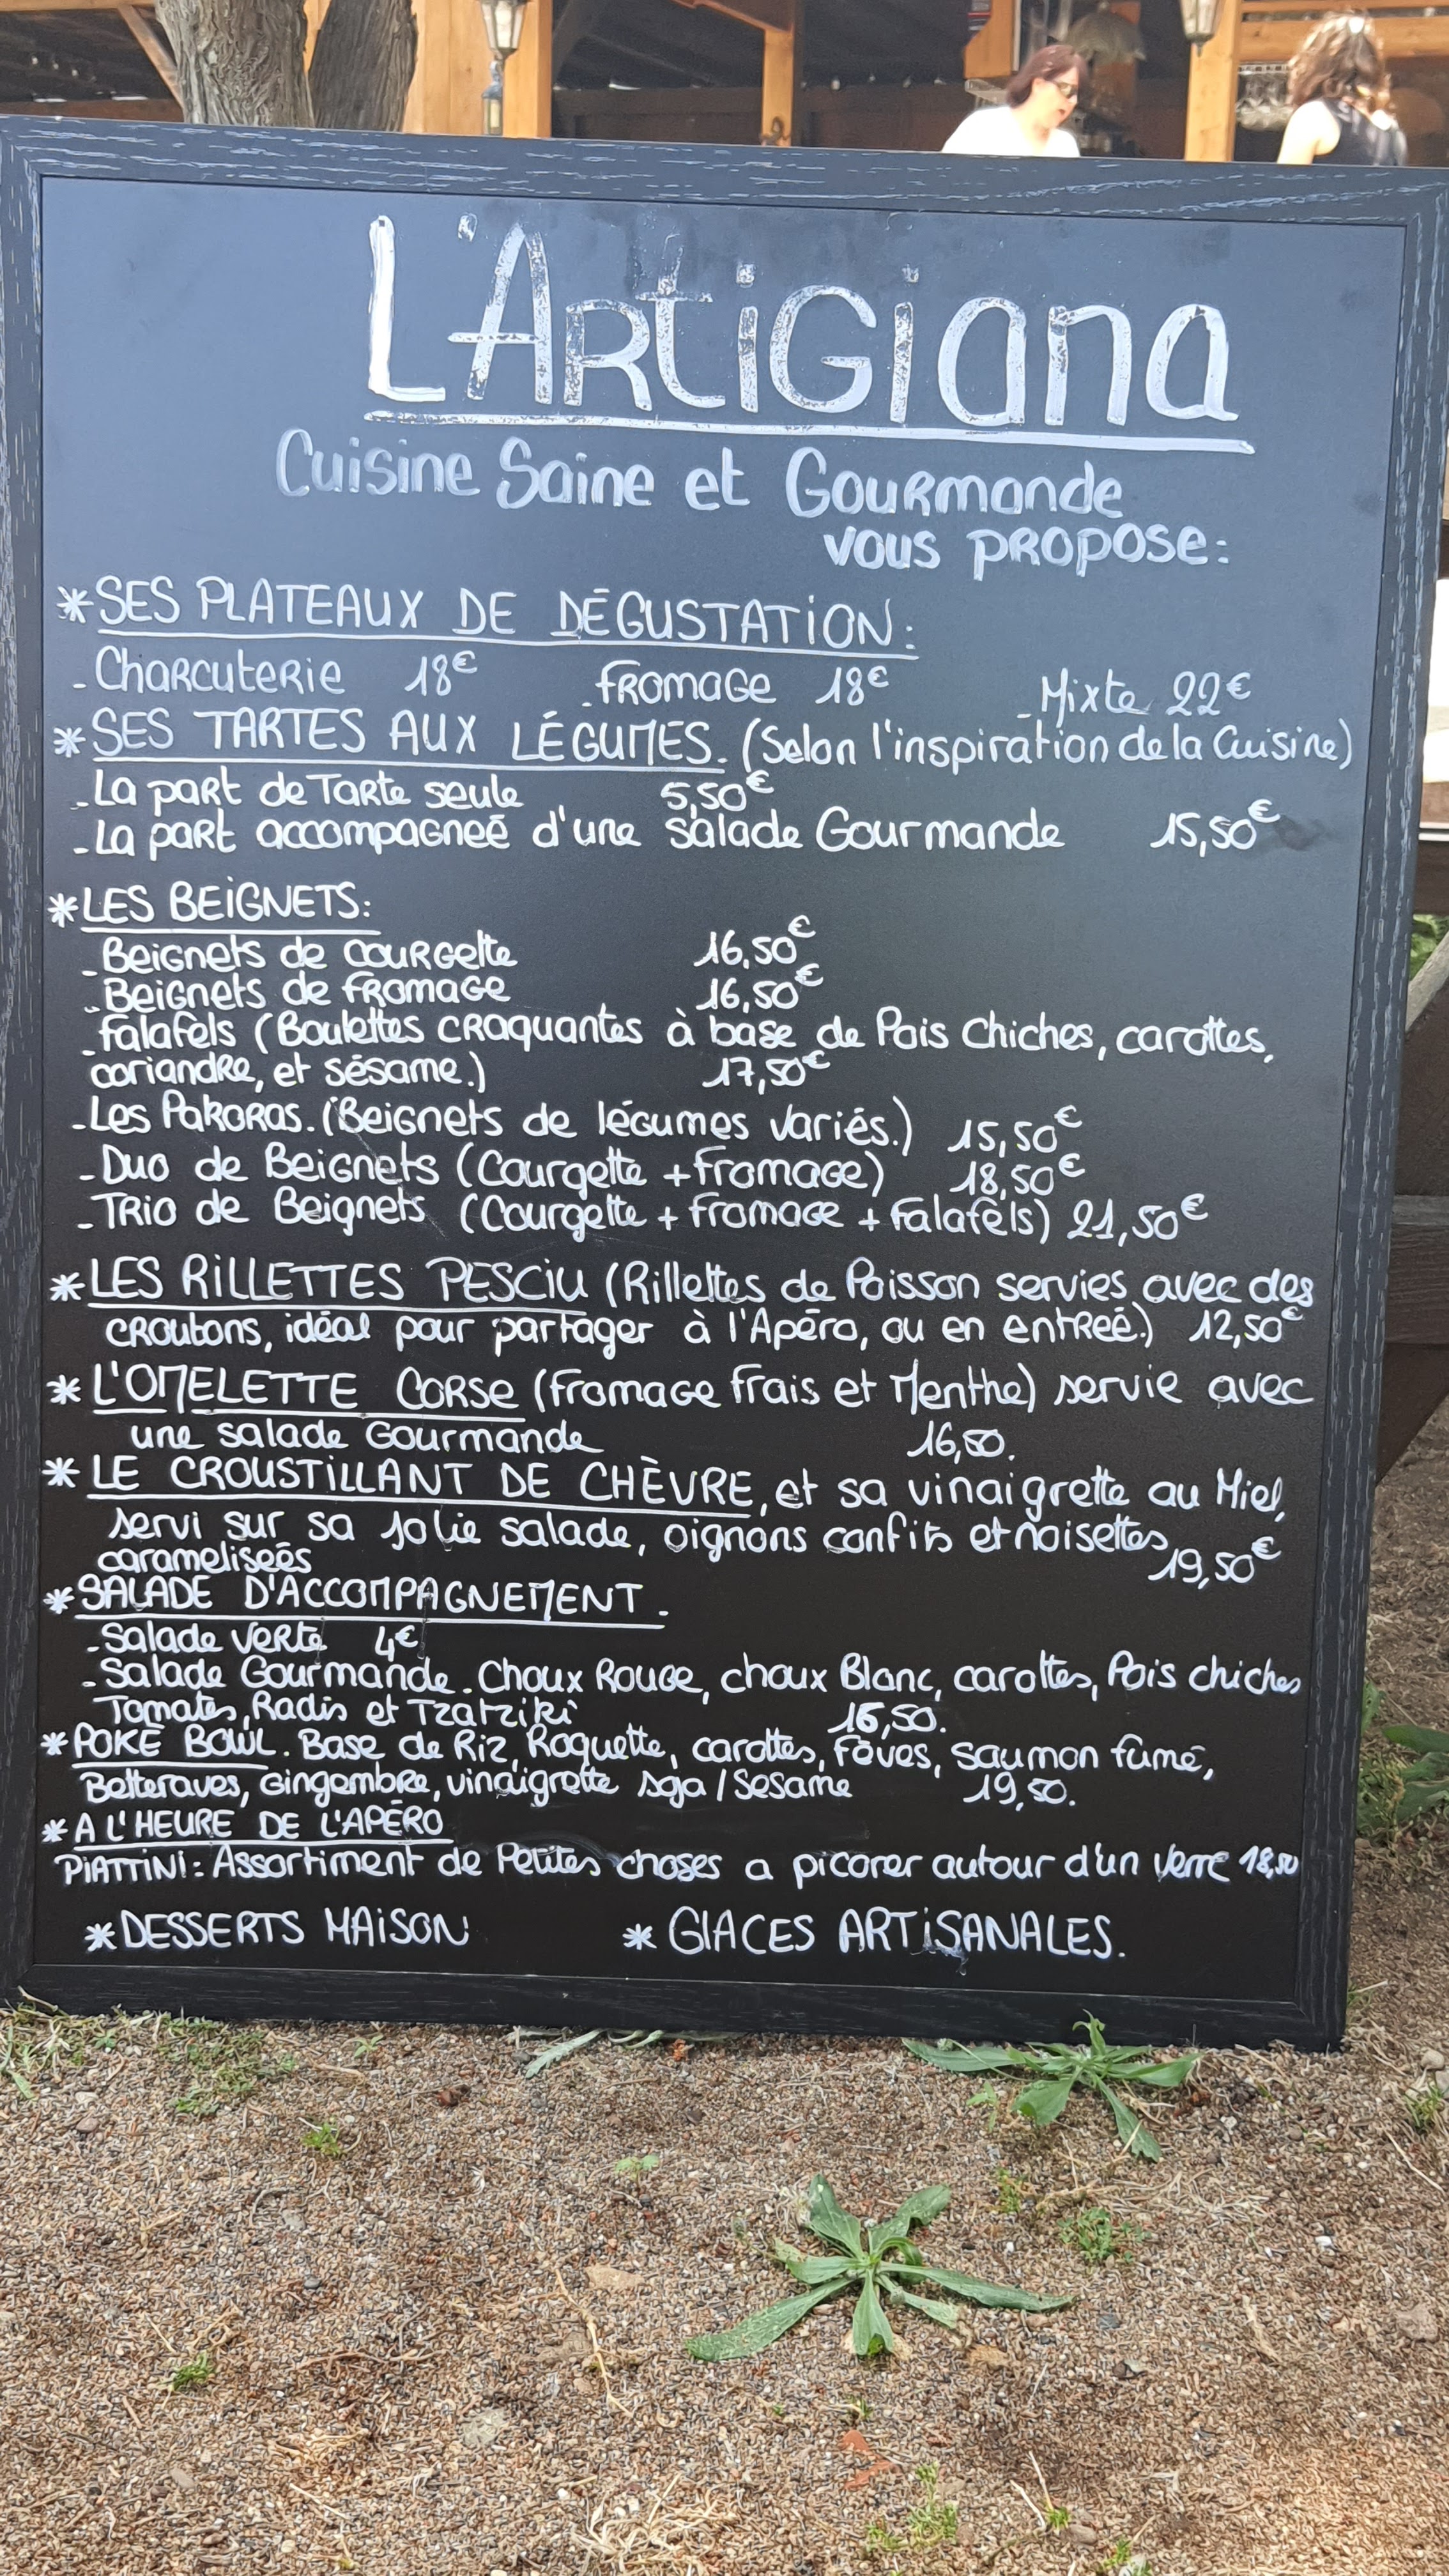 L'Artigiana
Cuisine Saine et Gourmande
vous propose:
*SES PLATEAUX DE DÉGUSTATION:
- Charcuterie 18€ - Fromage 18€ - Mixte 22€
*SES TARTES AUX LÉGUMES. (Selon l'inspiration de la Cuisine)
- La part de Tarte seule 5,50€
- La part accompagneé d'une salade Gourmande 15,50€
*LES BEIGNETS:
- Beignets de courgette 16,50€
- Beignets de fromage 16,50€
- Falafels (Boulettes craquantes à base de Pois chiches, carottes,
coriandre, et sésame.) 17,50€
- Les Pakoras. (Beignets de légumes variés.) 15,50€
- Duo de Beignets (Courgette + Fromage) 18,50€
- Trio de Beignets (Courgette + Fromage + Falafels) 21,50€
*LES RILLETTES PESCIU (Rillettes de Poisson servies avec des
croutons, idéal pour partager à l'Apéro, ou en entreé.) 12,50€
*L'OMELETTE CORSE (Fromage frais et Menthe) servie avec
une salade Gourmande 16,50.
*LE CROUSTILLANT DE CHÈVRE, et sa vinaigrette au Miel,
servi sur sa jolie salade, oignons confits et noisettes
carameliseés 19,50€
*SALADE D'ACCOMPAGNEMENT.
- Salade verte 4€
- Salade Gourmande. Choux Rouge, choux Blanc, carottes, Pois chiches
Tomates, Radis et Tzatziki 16,50.
*POKÉ BOWL. Base de Riz, Roquette, carottes, Fèves, saumon fumé,
Betteraves, Gingembre, vinaigrette soja / Sesame 19,50.
*A L'HEURE DE L'APÉRO
PIATTINI: Assortiment de Petites choses a picorer autour d'un verre 18,50
*DESSERTS MAISON *GLACES ARTISANALES.